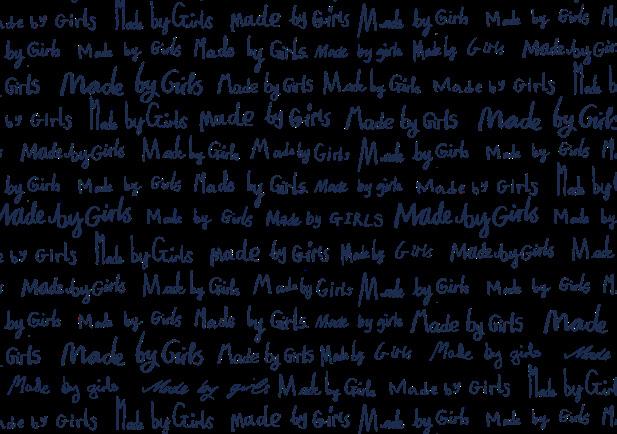 Made by Girls Made by Girls Made by Girls Made by Girls Made by Girls
by Girls Made by Girls Made by Girls Made by girls Made by Girls Made by Girls
Girls Made by Girls Made by Girls Made by Girls Made by Girls Made
by Girls Made by Girls Made by Girls Made by Girls Made by Girls
Made by Girls Made by Girls Made by Girls Made by Girls Made by Girls
by Girls Made by Girls Made by Girls Made by girls Made by Girls Made by
Made by Girls Made by Girls Made by GIRLS Made by Girls Made by
by Girls Made by Girls Made by Girls Made by Girls Made by Girls Made
Made by Girls Made by Girls Made by Girls Made by Girls Made by Girls
by Girls Made by Girls Made by Girls Made by girls Made by Girls Made
Girls Made by Girls Made by Girls Made by Girls Made by girls Made
Made by girls Made by girls Made by Girls Made by Girls Made by Girls
Made by Girls Made by Girls Made by Girls Made by Girls Made by Girls